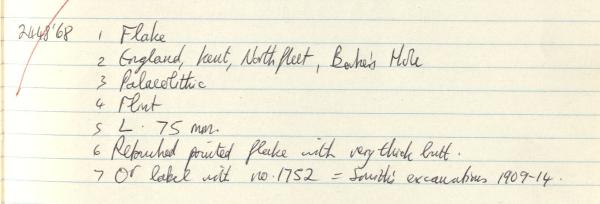 2448'68 1 Flake
2 England, Kent, Northfleet, Baker's Hole
3 Palaeolithic
4 Flint
5 L. 75 mm.
6 Retouched pointed flake with very thick butt.
7 Or label with no. 1752 = Smith's excavations 1909-14.